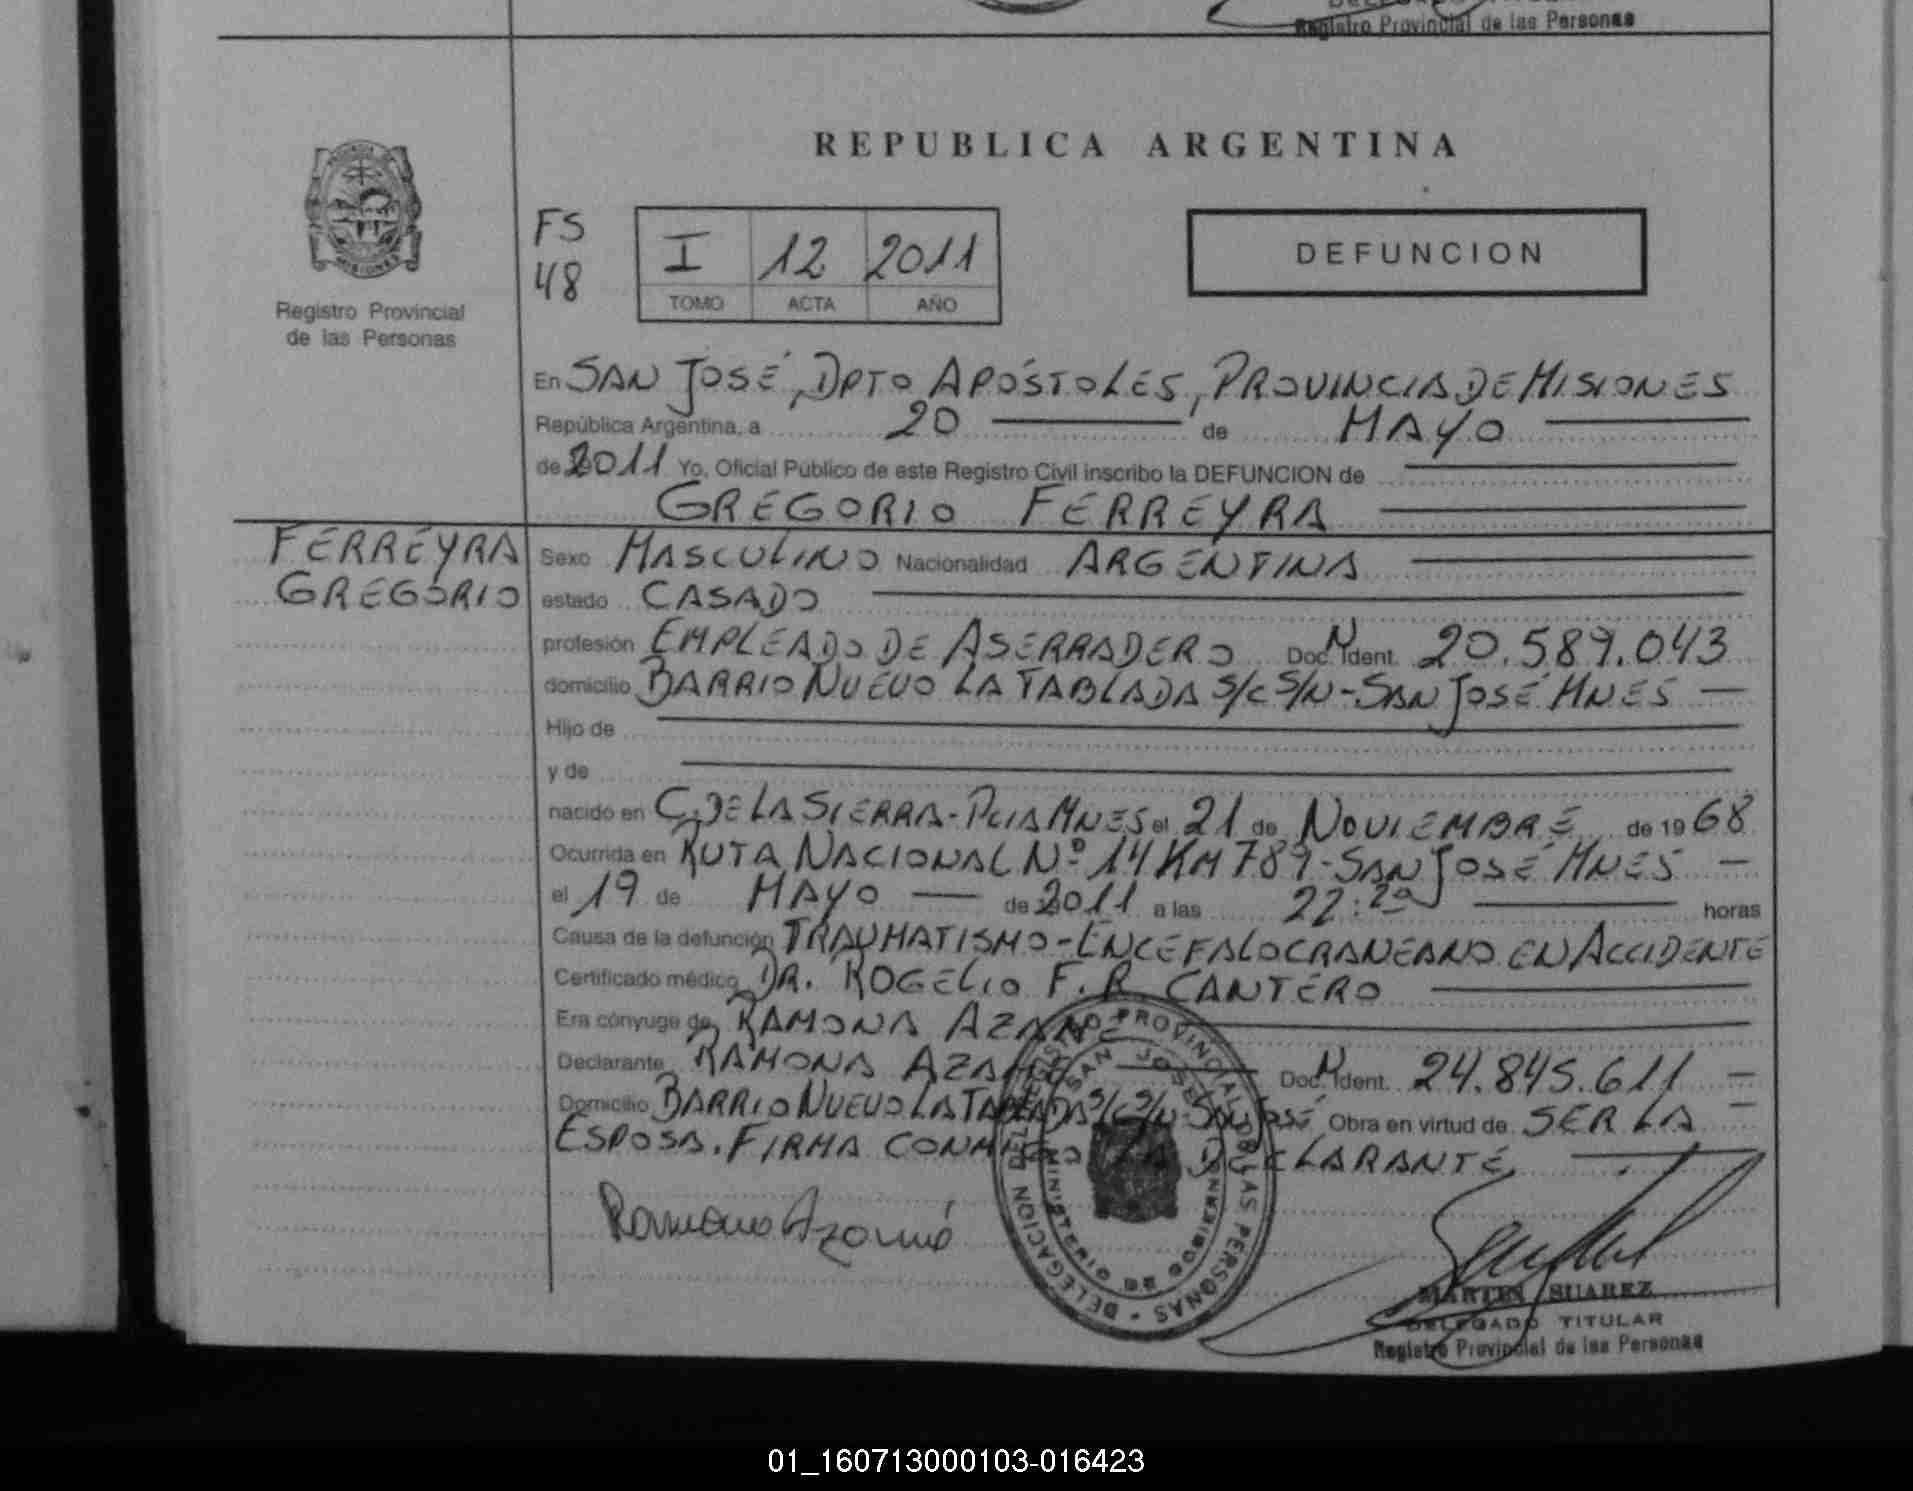 Registro Provincial de las Personas
REPUBLICA ARGENTINA
FS
48
I 12 2011
TOMO ACTA AÑO
DEFUNCION
MISIONES
Registro Provincial
de las Personas
En SAN JOSÉ, DPTO APÓSTOLES, PROVINCIA DE MISIONES
República Argentina, a 20 de MAYO
de 2011 Yo, Oficial Público de este Registro Civil inscribo la DEFUNCION de
GREGORIO FERREYRA
FERREYRA
GREGORIO
Sexo MASCULINO Nacionalidad ARGENTINA
estado CASADO
profesión EMPLEADO DE ASERRADERO Doc. N Ident. 20.589.043
domicilio BARRIO NUEVO LA TABLADA S/C S/N - SAN JOSÉ MNES
Hijo de
y de
nacido en C. DE LA SIERRA - PCIA MNES el 21 de NOVIEMBRE de 1968
Ocurrida en RUTA NACIONAL Nº 14 KM 789 - SAN JOSÉ MNES
el 19 de MAYO de 2011 a las 22:20 horas
Causa de la defunción TRAUMATISMO - ENCEFALOCRANEANO EN ACCIDENTE
Certificado médico DR. ROGELIO F. R. CANTERO
Era cónyuge de RAMONA AZAMÉ
Declarante RAMONA AZAMÉ Doc. N Ident. 24.845.611
Domicilio BARRIO NUEVO LA TABLADA S/C S/N SAN JOSÉ Obra en virtud de SER LA
ESPOSA. FIRMA CONMIGO LA DECLARANTE
Ramona Azamé
MINISTERIO DE GOBIERNO
SAN JOSE
MARTIN SUAREZ
DELEGADO TITULAR
Registro Provincial de las Personas
01_160713000103-016423